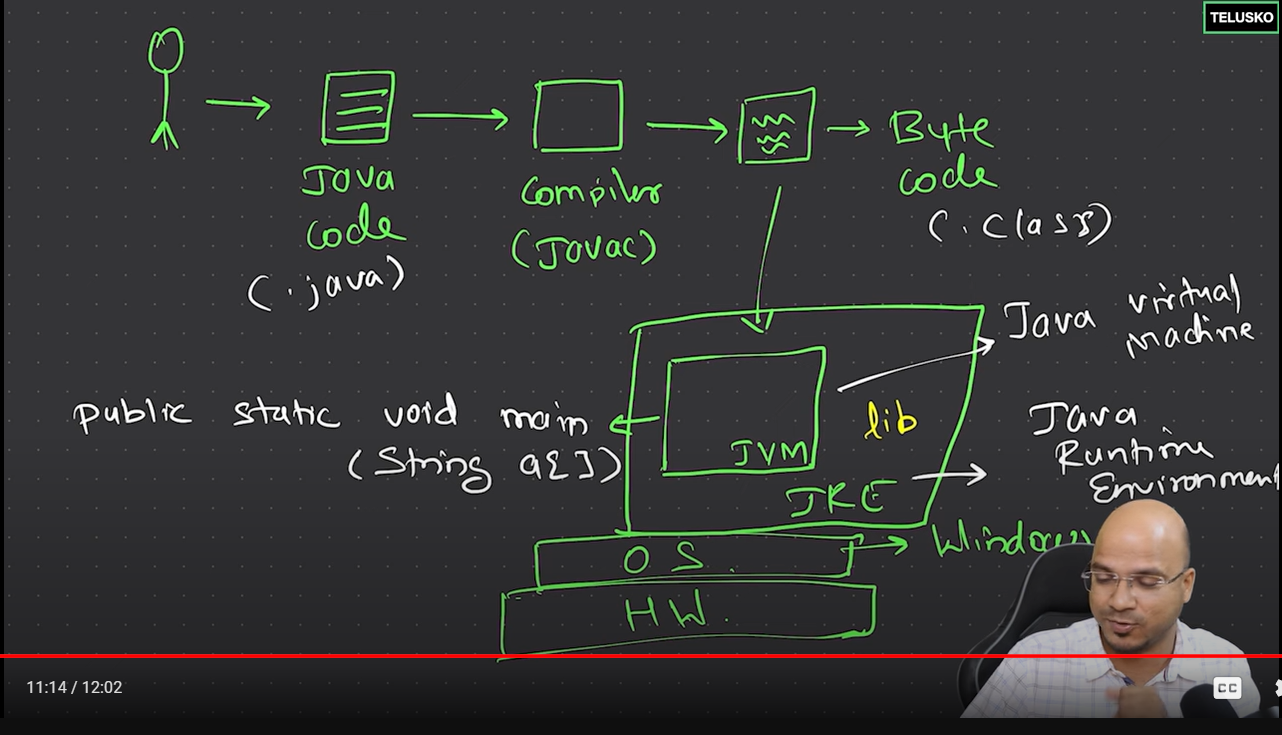 TELUSKO
Java
code
(.java)
Compiler
(Javac)
Byte
code
(.class)
Java virtual
machine
public static void main
(String a[])
lib
JVM
JRE
Java
Runtime
Environment
OS.
Windows
HW.
11:14 / 12:02
CC